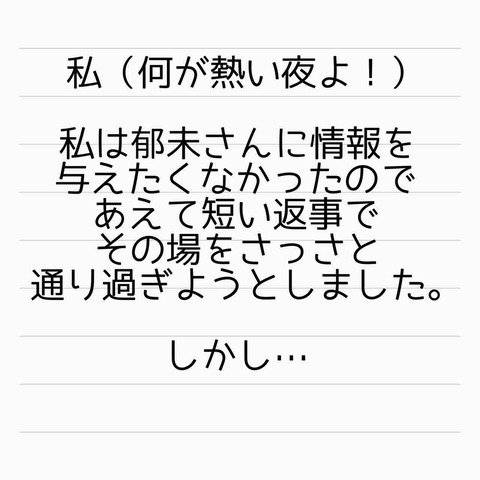 私（何が熱い夜よ！）
私は郁未さんに情報を
与えたくなかったので
あえて短い返事で
その場をさっさと
通り過ぎようとしました。
しかし…